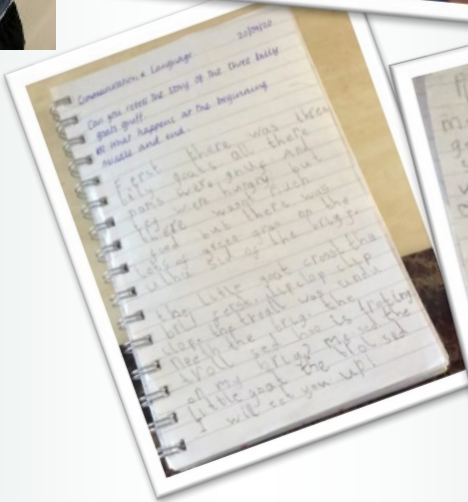 Communication & Language 20/04/20
Can you retell the story of the three billy
goats gruff.
what happens at the beginning
middle and end.
First there was three
billy goats all there
nams were gruff And
they were hungry but
there wasnt much
food but there was
lots of green gras on the
uther sid of the brigg.
the little goat crost the
brig ferst, clip clop clip
clop, the troll was
neeth the brig, the
troll sed hoo is
on my brig? Me sed the
little goat the troll sed
I will eat you up!